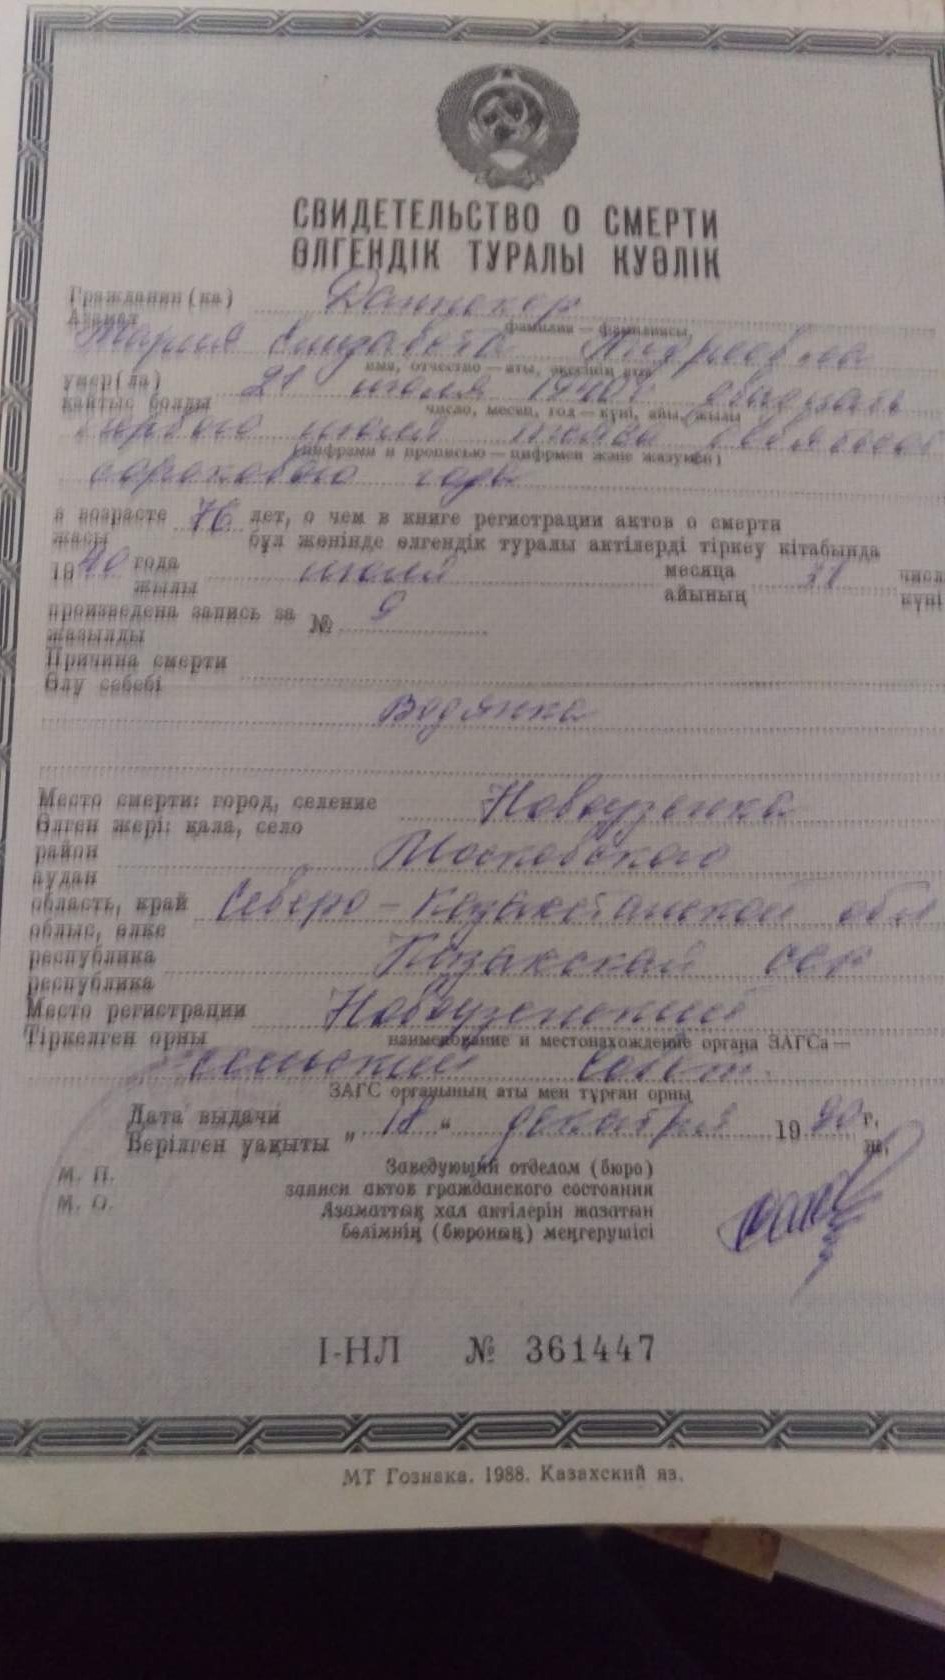 СВИДЕТЕЛЬСТВО О СМЕРТИ
ӨЛГЕНДІК ТУРАЛЫ КУӘЛІК
Гражданин(ка) Даннекер
Азамат
фамилия — фамилиясы,
Мария Елизавета Андреевна
имя, отчество — аты, әкесінің аты
умер(ла) 21 июля 1940г двадцать
қайтыс болды
число, месяц, год — күні, айы, жылы
первого июля тысяча девятьсот
(цифрами и прописью — цифрмен және жазумен)
сорокового года
в возрасте 76 лет, о чем в книге регистрации актов о смерти
жасы бұл жөнінде өлгендік туралы актілерді тіркеу кітабында
19 40 года июля месяца 21 числа
жылы айының күні
произведена запись за № 9
жазылды
Причина смерти
Өлу себебі
Водянка
Место смерти: город, селение Новоузенка
Өлген жері: қала, село
район Московского
аудан
область, край Северо-Казахстанской обл
облыс, өлке
республика Казахская ССР
республика
Место регистрации Новоузенский
Тіркелген орны
наименование и местонахождение органа ЗАГСа —
сельский Совет.
ЗАГС органының аты мен тұрған орны
Дата выдачи „ 18 “ декабря 19 90 г.
Берілген уақыты ж.
М. П. Заведующий отделом (бюро)
записи актов гражданского состояния
М. О. Азаматтық хал актілерін жазатын
бөлімнің (бюроның) меңгерушісі
I-НЛ № 361447
МТ Гознака. 1988. Казахский яз.